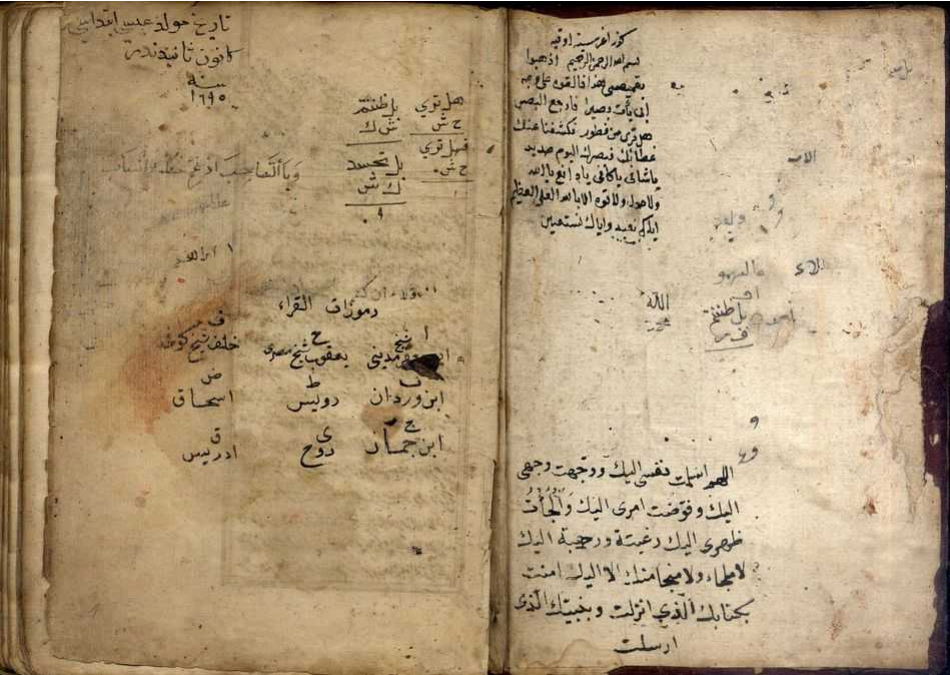 كوز اغرسنه اوقيه
بسم الله الرحمن الرحيم اذهبوا
بقميصى هذا فالقوه على وجه
ابى يأت بصيرا فارجع البصر
هل ترى من فطور فكشفنا عنك
غطائك فبصرك اليوم حديد
يا شافى يا كافى يا دافع بالله
ولا حول ولا قوه الا بالله العلى العظيم
اياك نعبد واياك نستعين
الله
محمد
بل ظننتم
اللهم اسلمت نفسى اليك ووجهت وجهى
اليك وفوضت امرى اليك وَاَلْجَأْتُ
ظهرى اليك رغبة ورهبة اليك
لا ملجاء ولا منجا منك الا اليك امنت
بكتابك الّذي انزلت وبنبيك الّذى
ارسلت
تاريخ مولد عيسى ابتداسى
كانون ثانيدندر
سنه
١٦٩٥
هل ترى بل ظننتم
ح ش ش ك
فهل ترى بل تحسد
ح ش ك ش
٩
رموزات القراء
ا ح ف
مدينى يعقوب شيخ بصرى خلف شيخ كوفى
ب ط ض
ابن وردان رويس اسحاق
ج ى ق
ابن جماز روح ادريس